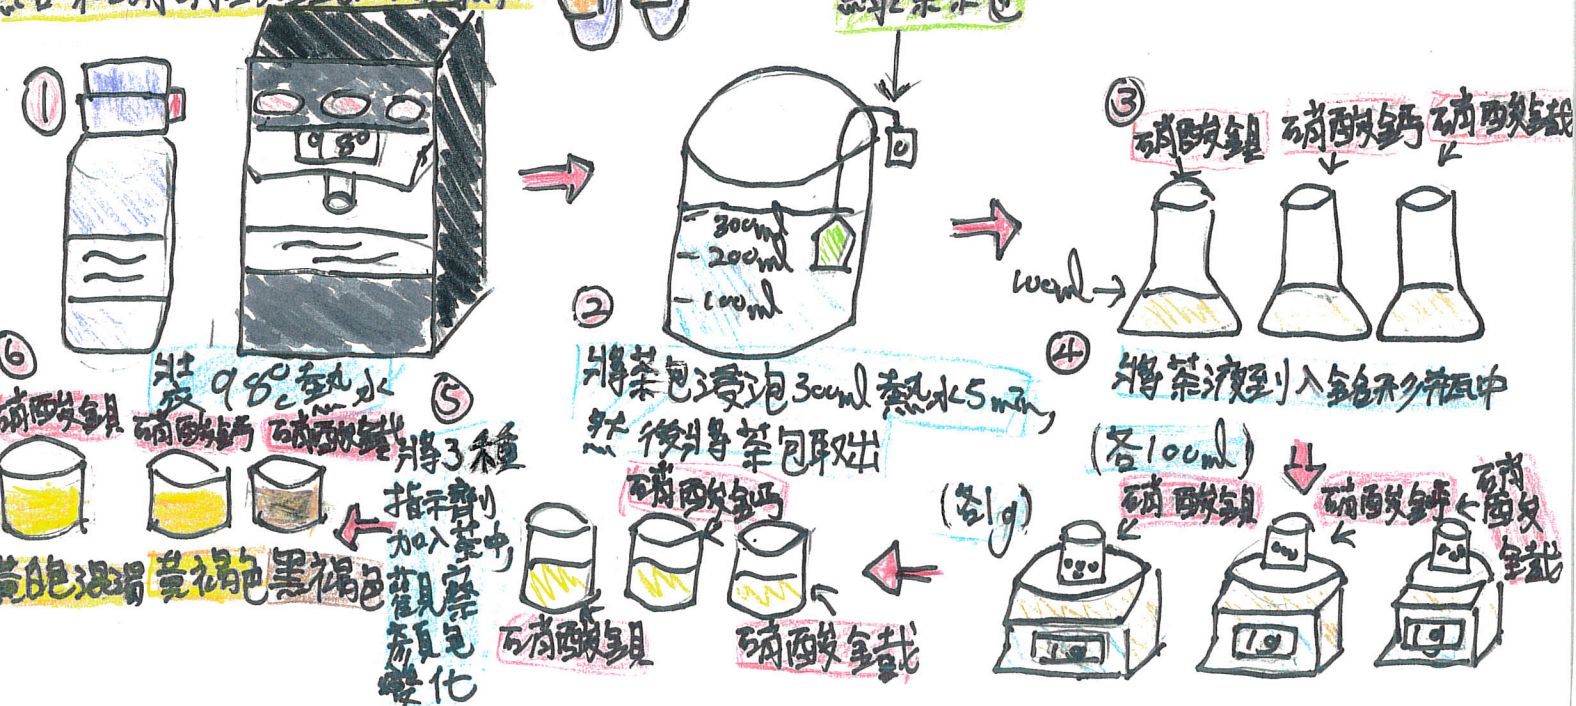 ①
98°
裝98℃熱水
②
300ml
200ml
100ml
將茶包浸泡300ml熱水5min,
然後將茶包取出
③
硝酸鋇
硝酸鈣
硝酸鐵
100ml
④
將茶液到入錐形瓶中
(各100ml)
硝酸鋇
硝酸鈣
硝酸鐵
(各1g)
1g
1g
1g
⑤
將3種
指示劑
加入茶中,
觀察
顏色
變化
硝酸鈣
硝酸鋇
硝酸鐵
⑥
硝酸鋇
硝酸鈣
硝酸鐵
黃色混濁
黃褐色
黑褐色